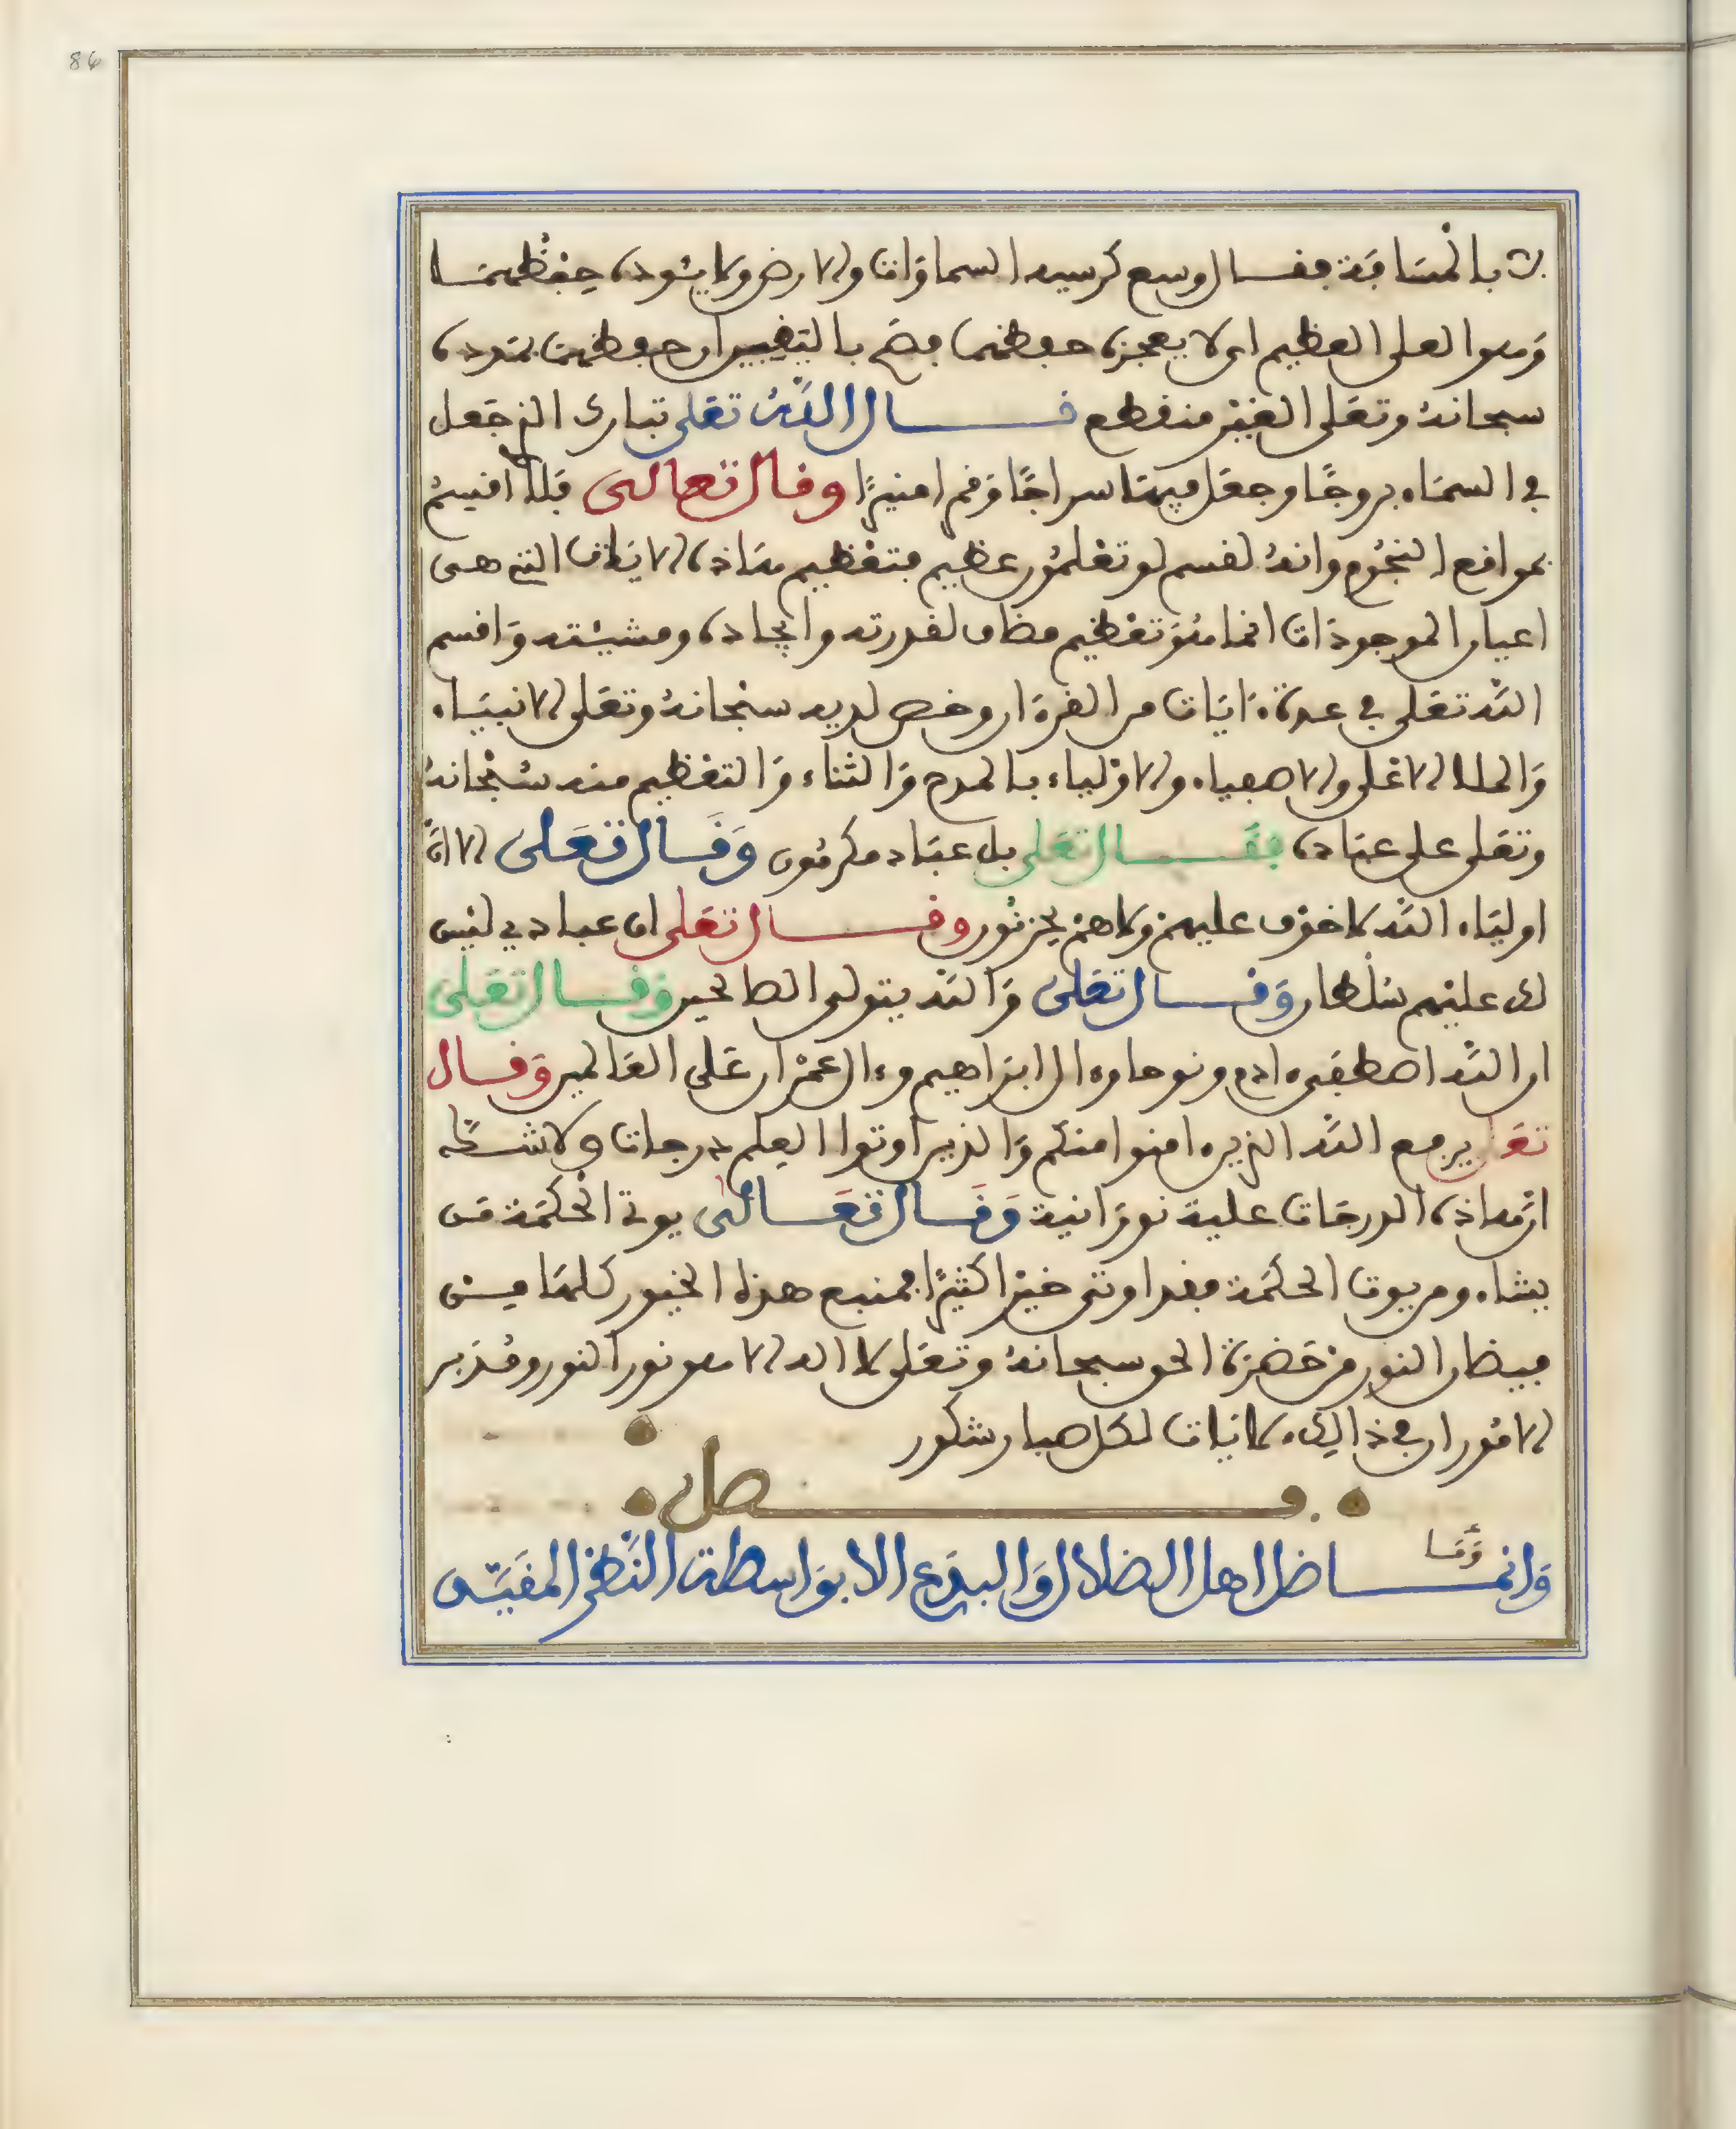 86
بالمسافة فقال وسع كرسيه السماوات والارض ولا يئوده حفظهما
وهو العلي العظيم اي لا يعجزه حفظهما فصح باليقين ان حفظهما بيده
سبحانه وتعلى الغير منقطع قال الله تعلى تبارك الذي جعل
في السماء بروجا وجعل فيها سراجا وقمرا منيرا وقال تعالى فلا اقسم
بمواقع النجوم وانه لقسم لو تعلمون عظيم فتعظيم هاذه الايات التي هي
اعيان الموجودات انما هو تعظيم مضاف لقدرته وايجاده ومشيئته واقسم
الله تعلى في عدة ءايات من القرءان وخص لديه سبحانه وتعلى الانبياء
والملا الاعلى والاصفياء والاولياء بالمدح والثناء والتعظيم منه سبحانه
وتعلى على عباده فقال تعلى بل عباد مكرمون وقال تعلى الا ان
اولياء الله لا خوف عليهم ولا هم يحزنون وقال تعلى ان عبادي ليس
لك عليهم سلطان وقال تعلى والله يتولى الصالحين وقال تعلى
ان الله اصطفى ءادم ونوحا وءال ابراهيم وءال عمران على العالمين وقال
تعلى يرفع الله الذين ءامنوا منكم والذين اوتوا العلم درجات ولا شك
ان هاذه الدرجات علية نورانية وقال تعالى يوتي الحكمة من
يشاء ومن يوت الحكمة فقد اوتي خيرا كثيرا فمنبع هذه الخيور كلها من
فيضان النور من حضرة الحق سبحانه وتعلى لا اله الا هو نور النور ومدبر
الامور ان في ذالك لايات لكل صبار شكور
فصل
وانما ضل اهل الضلال والبدع الا بواسطة النظر المقيد
وما